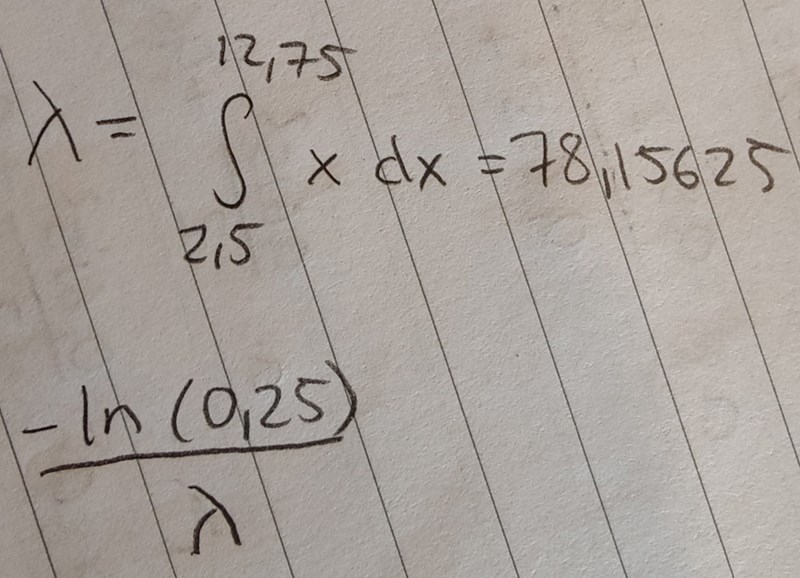 λ = ∫_{2,5}^{12,75} x dx = 78,15625
-ln (0,25) / λ